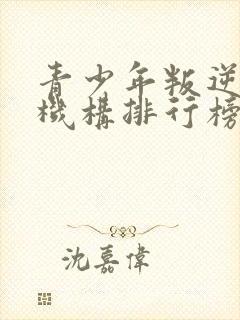 青少年叛逆
機構排行榜
沈嘉偉